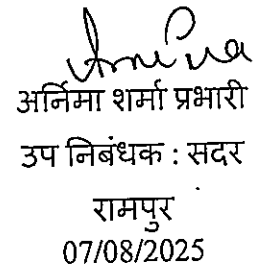 अर्निमा शर्मा प्रभारी
उप निबंधक : सदर
रामपुर
07/08/2025